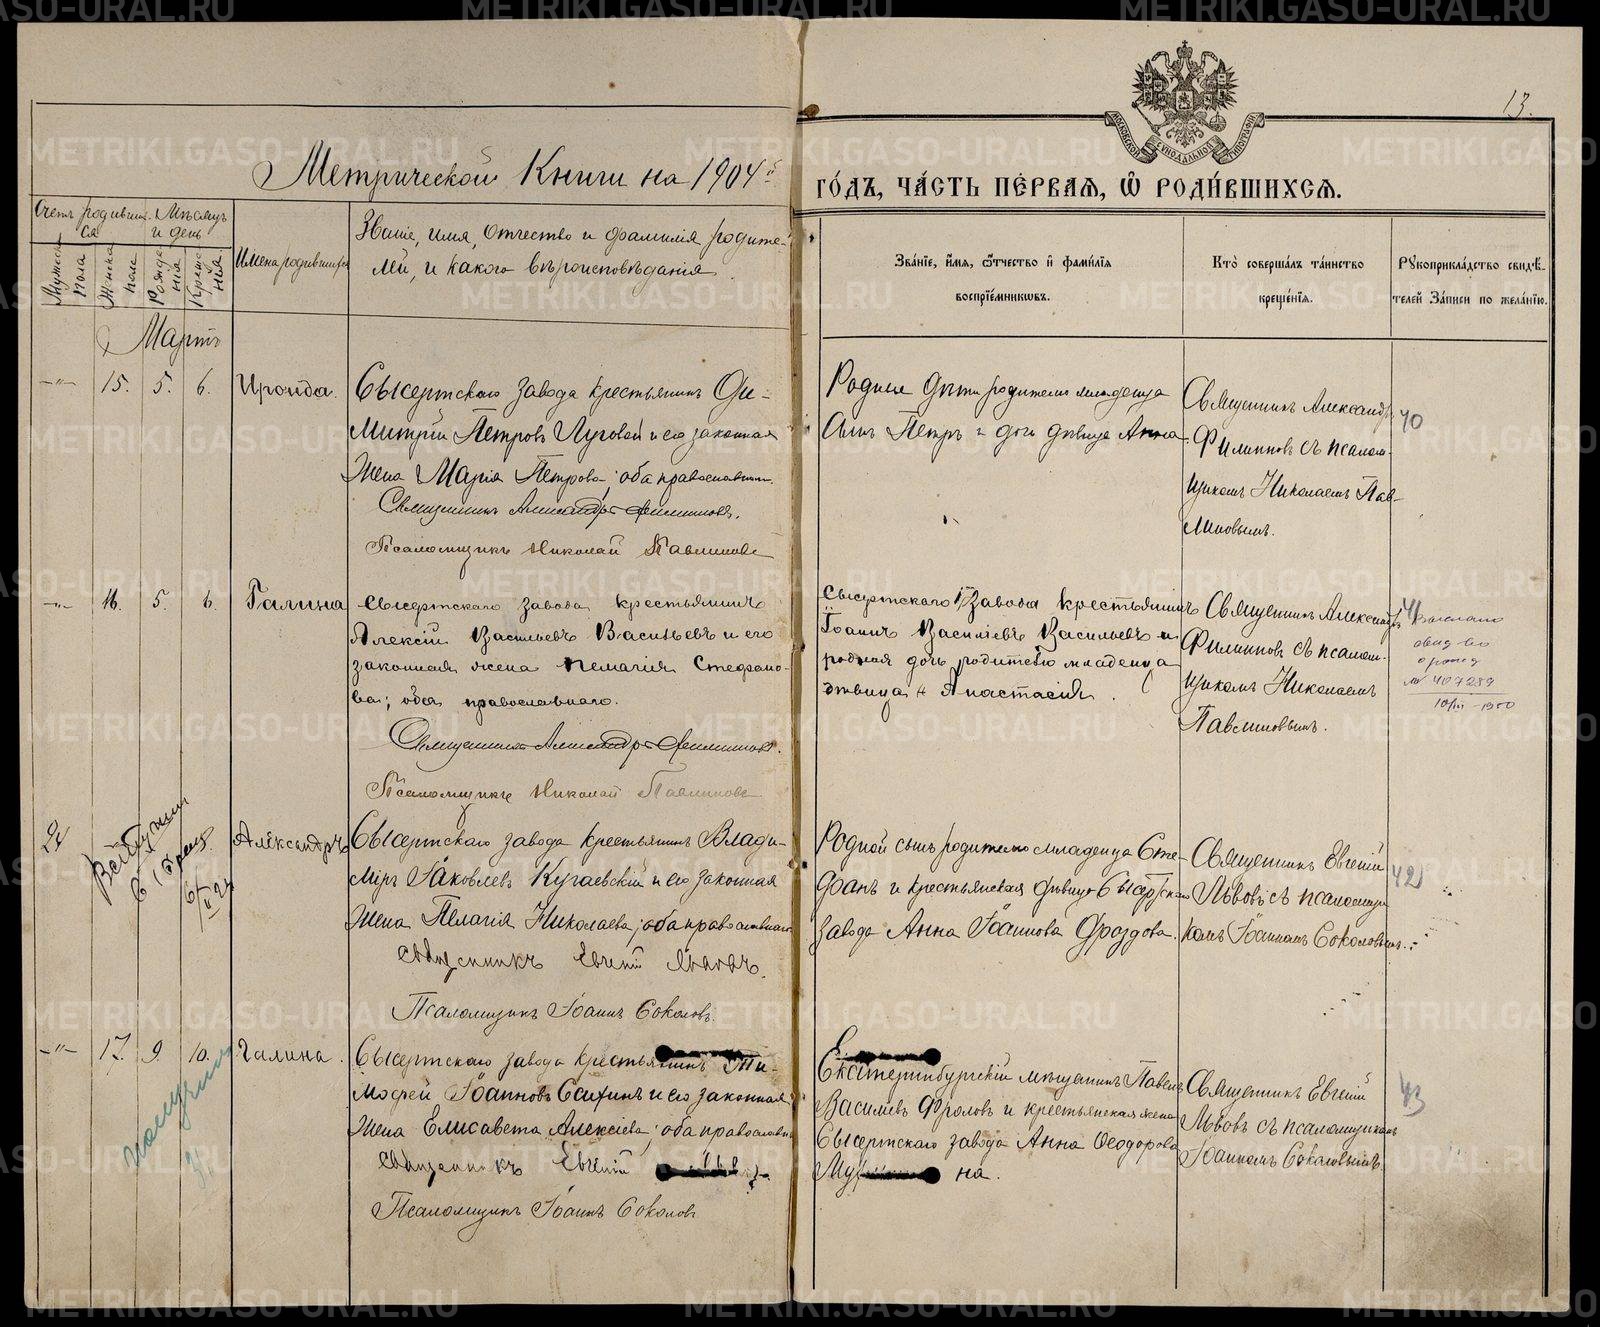 13.
МОСКОВСКОЙ СѴНОДАЛЬНОЙ ТИПОГРАФІИ
Метрической Книги на 1904й
го́дъ, ча́сть пе́рваѧ, ѡ҆ роди́вшихсѧ.
Счетъ родивших-ся
Мѣсяцъ и день
Мужеска пола
Женска пола
Рожде-нія
Креще-нія
Имена родившихся
Званіе, имя, отчество и фамилія родите-
лей, и какого вѣроисповѣданія
Зва́нїе, и҆́мѧ, ѻ҆́тчество и҆ фами́лїѧ
воспрїе́мникѡвъ.
Кто̀ соверша́лъ та́инство
креще́нїѧ.
Рꙋкоприкла́дство свидѣ́-
телей за́писи по жела́нїю.
Мартъ
-"- 15. 5. 6. Ироида.
Сысертскаго завода крестьянинъ Ди-
митрій Петровъ Луговой и его законная
жена Марія Петрова; оба православные.
Священникъ Александръ Филипповъ.
Псаломщикъ Николай Павлиновъ
Родные дѣти родителей младенца
сынъ Петръ и дочь дѣвица Анна
Священникъ Александръ
Филипповъ съ псалом-
щикомъ Николаемъ Пав-
линовымъ.
40
-"- 16. 5. 6. Галина
Сысертскаго завода крестьянинъ
Алексій Васильевъ Васильевъ и его
законная жена Пелагія Стефано-
ва; оба православные.
Священникъ Александръ Филипповъ.
Псаломщикъ Николай Павлиновъ
Сысертскаго завода крестьянинъ
Іоаннъ Василіевъ Васильевъ и
родная дочь родителей младенца
дѣвица Анастасія.
Священникъ Александръ
Филипповъ съ псалом-
щикомъ Николаемъ
Павлиновымъ.
41
Выслано
свид-во
о рожд
№ 407289
1950
24 Александръ
Сысертскаго завода крестьянинъ Влади-
міръ Іаковлевъ Кугаевскій и его законная
жена Пелагія Николаева; оба православные
Священникъ Евгеній Львовъ.
Псаломщикъ Іоаннъ Соколовъ.
Родной сынъ родителей младенца Сте-
фанъ и крестьянская дѣвица Сысертскаго
завода Анна Іоаннова Дроздова.
Священникъ Евгеній
Львовъ съ псаломщи-
комъ Іоанномъ Соколовымъ.
42
-"- 17. 9. 10. Галина.
Сысертскаго завода крестьянинъ Ти-
мофей Іоанновъ и его законная
жена Елисавета Алексіева; оба православные
Священникъ Евгеній
Псаломщикъ Іоаннъ Соколовъ
Екатеринбургскій мѣщанинъ Павелъ
Василіевъ Фроловъ и крестьянская жена
Сысертскаго завода Анна Ѳеодорова
на.
Священникъ Евгеній
Львовъ съ псаломщикомъ
Іоанномъ Соколовымъ.
43
METRIKI.GASO-URAL.RU